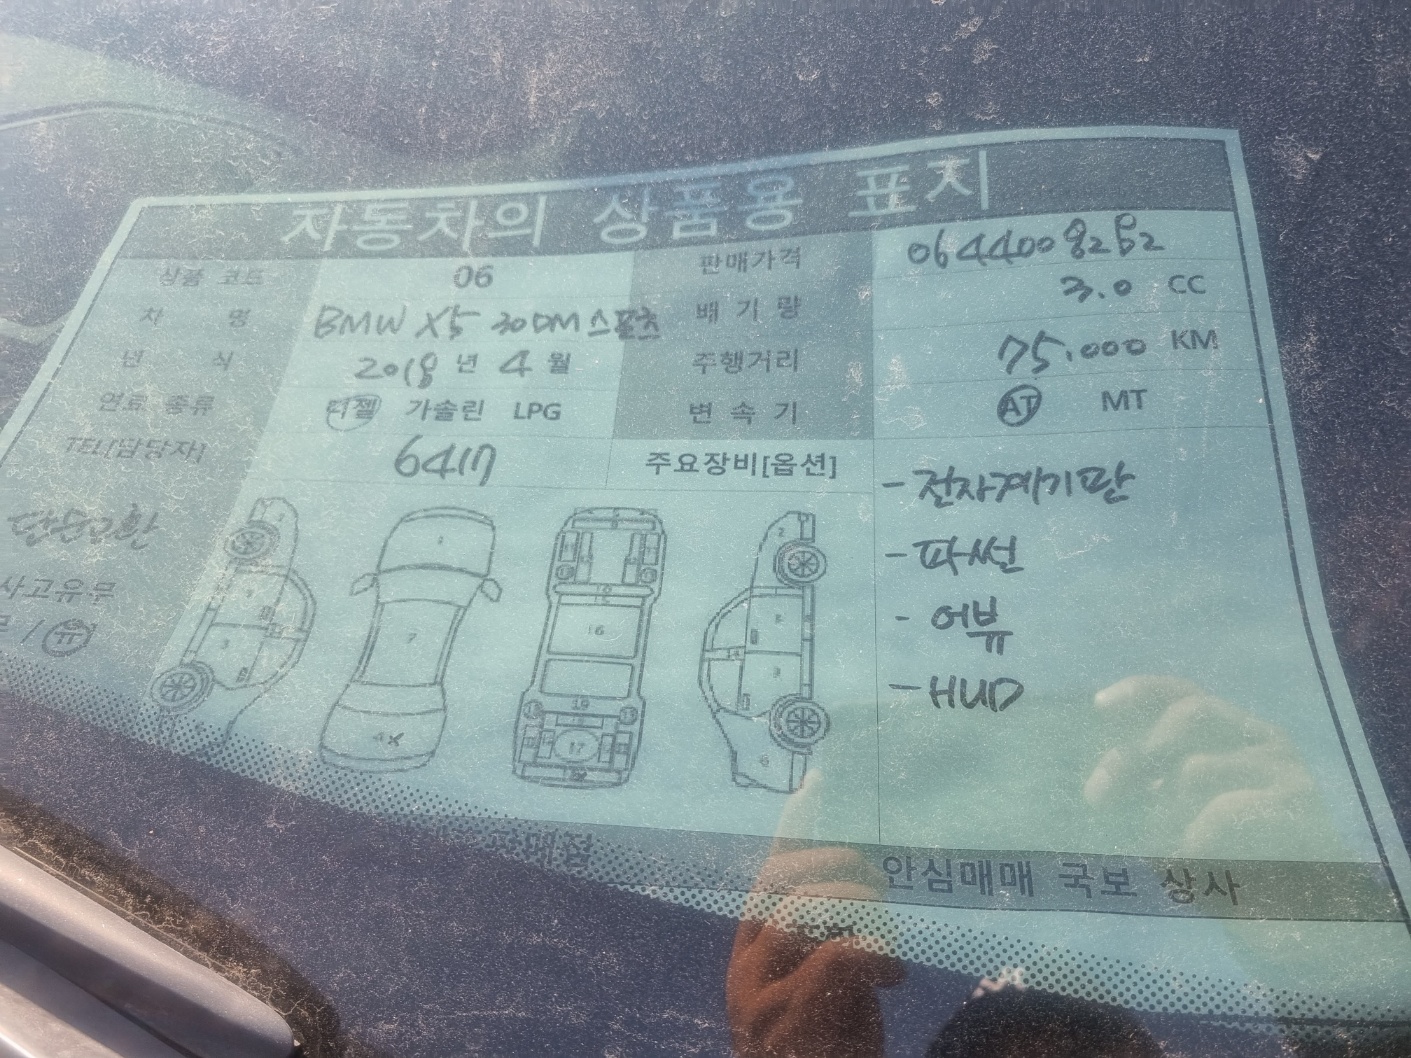 자동차의 상품용 표지
상품 코드 06 판매가격
차 명 BMW X5 30DM스포츠 배 기 량 3.0 CC
년 식 2018 년 4 월 주행거리 75.000 KM
연료 종류 디젤 가솔린 LPG 변 속 기 AT MT
TEL[담당자] 6417 주요장비[옵션]
- 전자계기판
- 파썬
- 어뷰
- HUD
단순교환
사고유무
무 / 유
안심매매 국보 상사